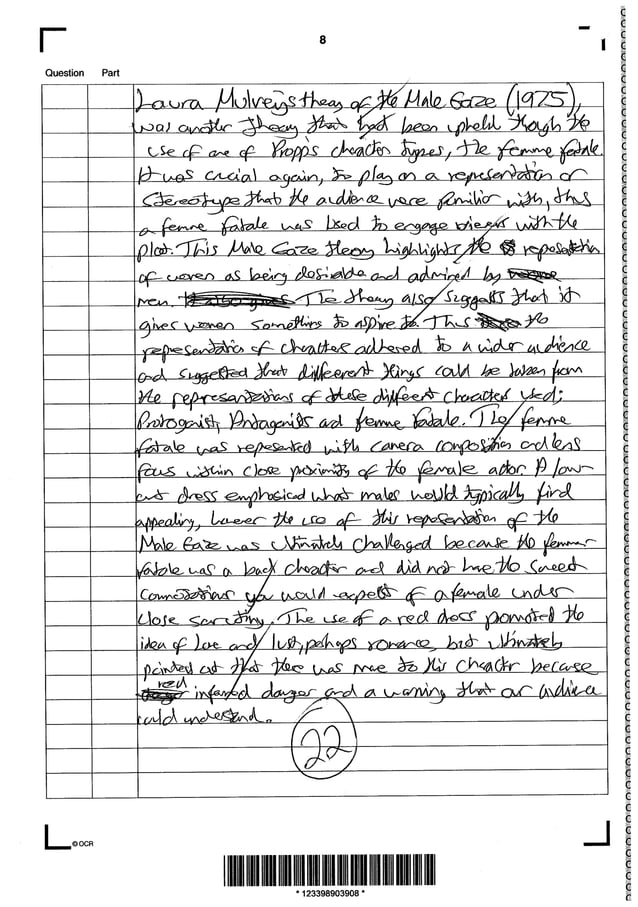 8
Question Part
Laura Mulvey's theory of the Male Gaze (1975),
was another theory that had been upheld though the
use of one of Propp's character types, the femme fatale.
It was crucial again, to play on a representation or
stereotype that the audience were familiar with, thus
a femme fatale was used to engage viewers with the
plot. This Male Gaze theory highlights the representation
of women as being desirable and admired by
men. The theory also suggests that it
gives women something to aspire to. This the
representation of characters adhered to a wider audience
and suggested that different things could be taken from
the representations of these different characters used;
Protagonist, Antagonists and femme fatale. The femme
fatale was represented with camera composition and lens
focus within close proximity of the female actor. A low-
cut dress emphasised what males would typically find
appealing, however the use of this representation of the
Male Gaze was ultimately challenged because the femme
fatale was a back character and did not have the sweet
connotations you would expect of a female under
close scrutiny. The use of a red dress promoted the
idea of love and lust, perhaps romance, but ultimately
pointed out that there was more to this character because
red inferred danger and a warning that our audience
could understand.
22
© OCR
* 123398903908 *